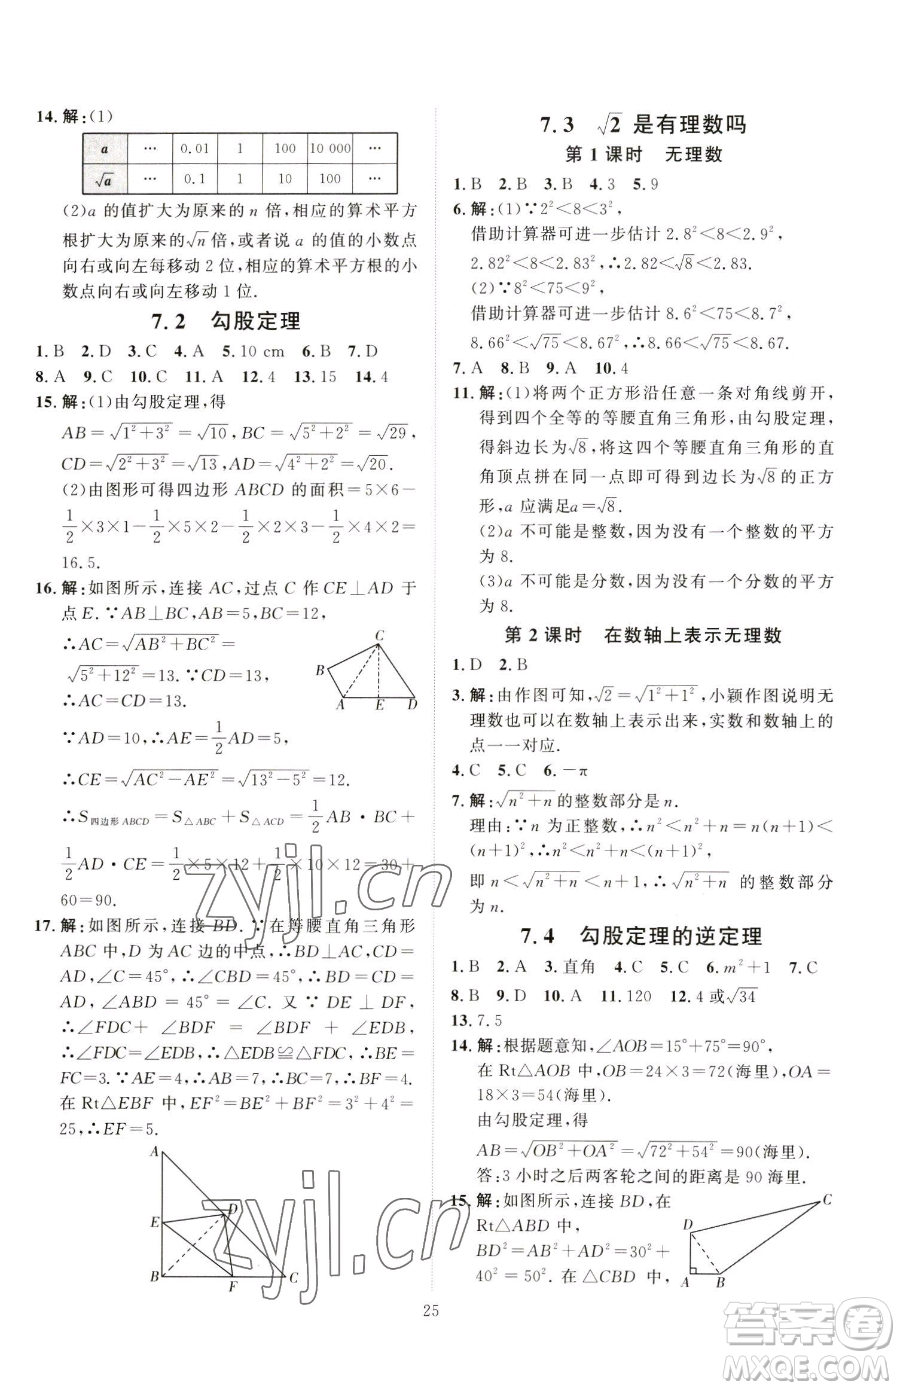 14. 解:(1)
a … 0.01 1 100 10 000 …
√a … 0.1 1 10 100 …
(2)a 的值扩大为原来的 n 倍,相应的算术平方
根扩大为原来的√n倍,或者说 a 的值的小数点
向右或向左每移动 2 位,相应的算术平方根的小
数点向右或向左移动 1 位.
7.2 勾股定理
1. B 2. D 3. C 4. A 5. 10 cm 6. B 7. D
8. A 9. C 10. C 11. A 12. 4 13. 15 14. 4
15. 解:(1)由勾股定理,得
AB=√(1²+3²)=√10,BC=√(5²+2²)=√29,
CD=√(2²+3²)=√13,AD=√(4²+2²)=√20.
(2)由图形可得四边形 ABCD 的面积=5×6−
1/2×3×1−1/2×5×2−1/2×2×3−1/2×4×2=
16.5.
16. 解:如图所示,连接 AC,过点 C 作 CE⊥AD 于
点 E.∵AB⊥BC,AB=5,BC=12,
∴AC=√(AB²+BC²)=
√(5²+12²)=13.∵CD=13,
∴AC=CD=13.
∵AD=10,∴AE=1/2AD=5,
∴CE=√(AC²−AE²)=√(13²−5²)=12.
∴S四边形ABCD=S△ABC+S△ACD=1/2AB·BC+
1/2AD·CE=1/2×5×12+1/2×10×12=30+
60=90.
B C A E D
17. 解:如图所示,连接 BD.∵在等腰直角三角形
ABC 中,D 为 AC 边的中点,∴BD⊥AC,BD=
CD=AD,∠C=45°,∴∠CBD=45°,
∴∠ABD=45°=∠C.又∵DE⊥DF,
∴∠FDC+∠BDF=∠EDB+∠BDF,
∴∠FDC=∠EDB,∴△EDB≌△FDC,∴BE=
FC=3.∵AB=BC=7,∴BF=4.
在 Rt△EBF 中,EF²=BE²+BF²=3²+4²=
25,∴EF=5.
A
D
E
B F C
7.3 √2 是有理数吗
第 1 课时 无理数
1. B 2. B 3. B 4. 3 5. 9
6. 解:(1)∵2²<8<3²,
借助计算器可进一步估计 2.8²<8<2.9²,
2.82²<8<2.83².∴2.82<√8<2.83.
(2)∵8²<75<9²,
借助计算器可进一步估计 8.6²<75<8.7²,
8.66²<75<8.67².∴8.66<√75<8.67.
7. A 8. B 9. A 10. 4
11. 解:(1)将两个正方形沿任意一条对角线剪开,
得到四个全等的等腰直角三角形,由勾股定理,
得斜边长为√8,将这四个等腰直角三角形的直
角顶点拼在同一点即可得到边长为√8的正方
形,a 应满足a=√8.
(2)a 不可能是整数,因为没有一个整数的平方
为 8.
(3)a 不可能是分数,因为没有一个分数的平方
为 8.
第 2 课时 在数轴上表示无理数
1. D 2. B
3. 解:由作图可知,√2=√(1²+1²),小颖作图说明无
理数也可以在数轴上表示出来,实数和数轴上的
点一一对应.
4. C 5. C 6. −π
7. 解:√(n²+n)的整数部分是 n.
理由:∵n 为正整数,∴n²<n²+n=n(n+1)<
(n+1)²,∴n²<n²+n<(n+1)²,
即 n<√(n²+n)<n+1.∴√(n²+n)的整数部分
为 n.
7.4 勾股定理的逆定理
1. B 2. A 3. 直角 4. C 5. C 6. m²+1 7. C
8. B 9. D 10. A 11. 120 12. 4 或√34
13. 7.5
14. 解:根据题意知,∠AOB=15°+75°=90°,
在 Rt△AOB 中,OB=24×3=72(海里),OA=
18×3=54(海里).
由勾股定理,得
AB=√(OB²+OA²)=√(72²+54²)=90(海里).
答:3 小时之后两客轮之间的距离是 90 海里.
15. 解:如图所示,连接 BD,在
Rt△ABD 中,
BD²=AB²+AD²=30²+
40²=50².在△CBD 中,
C
D
A B
25
zyjl.cn
zyjl.cn
答案圈
MXQE.COM